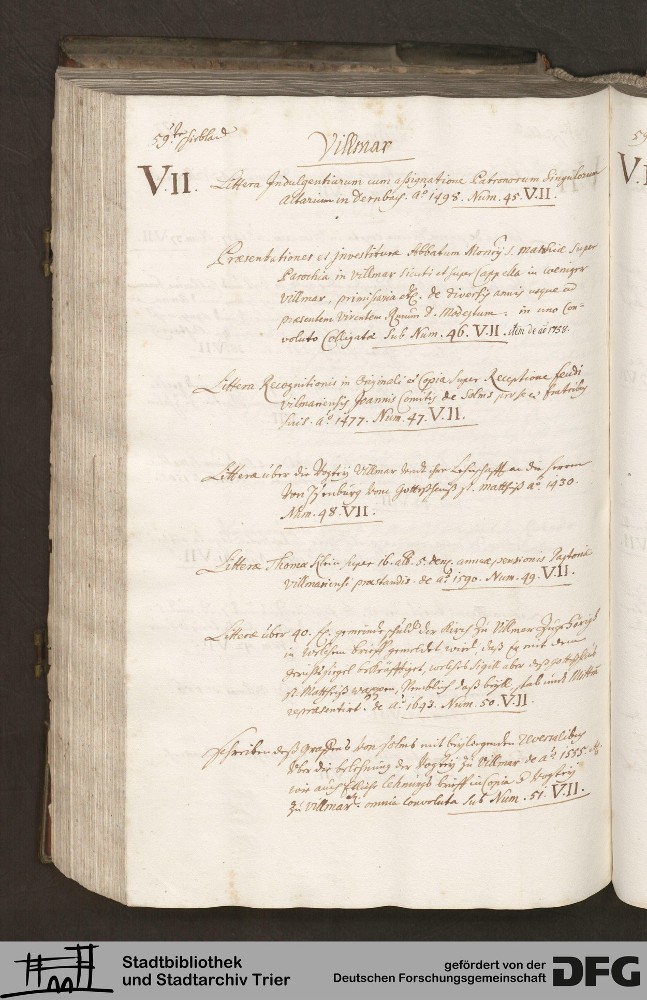 59te
Villmar
V.II. Littera Indulgentiarum cum assignatione Patronorum Singulorum
Altarium in Dernbach. aõ 1498. Num. 45. V.II.
Præsentationes et investituræ Abbatum Monrÿ S. Mathiæ super
Parochia in Villmar sicuti et super Cappella in weniger
Villmar, primissaria etc. de diversis annis usque ad
præsentem viventem Rmum D. Modestum. in uno Con-
voluto Colligatæ sub Num. 46. V.II. Item de aõ 1738.
Littera Recognitionis in Originali et Copia super Receptione feudi
Vilmariensis Joannis Comitis de Solms pro se et fratribus
suis. aõ 1477. Num. 47. V.II.
Littera über die Vogteÿ Villmar undt ihre Lehnschafft an die Herren
von Isenburg vom Gotteshauß St. Matthiß aõ 1430.
Num. 48. VII.
Litteræ Thomæ Klein super 16. alb. 5. den. annuæ pensionis Pastoriæ
Villmariensi præstandis. de aõ 1590. Num. 49. V.II.
Litteræ über 40. fl. gemeinde schuldt der Kirch zu Villmar zugehörig
in welchem brieff gemeldet wird, daß Er mit dem
gerichtssiegel bekräfftiget, welches Sigill aber deß gotteshauß
St. Matthiß wappen, Nemblich daß beÿll, stab undt
repræsentirt. de aõ 1643. Num. 50. V.II.
Schreiben deß Graffens von Solms mit beÿliegenden Reversalibus
über die belehnung der Vogteÿ zu Villmar de aõ 1555. etc
wie auch Etliche Lehnungs brieff in Copia Vogteÿ
zu Villmar etc. omnia convoluta sub Num. 51. V.II.
59
V.I
Stadtbibliothek
und Stadtarchiv Trier
gefördert von der
Deutschen Forschungsgemeinschaft
DFG